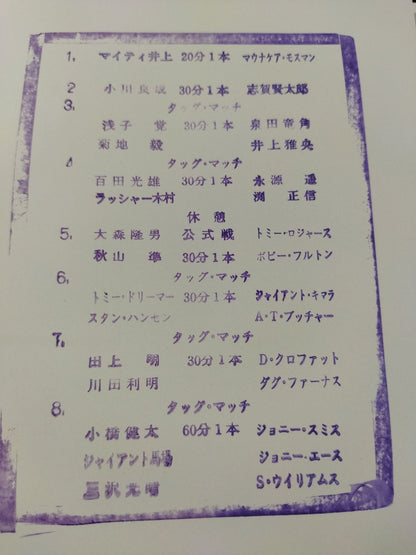 1. マイティ井上 20分1本 マウナケア・モスマン
2. 小川良成 30分1本 志賀賢太郎
3. タッグ・マッチ
浅子 覚 30分1本 泉田竜角
菊地 毅 井上雅央
4. タッグ・マッチ
百田光雄 30分1本 永源 遥
ラッシャー木村 渕 正信
休憩
5. 大森隆男 公式戦 トミー・ロジャース
秋山 準 30分1本 ボビー・フルトン
6. タッグ・マッチ
トミー・ドリーマー 30分1本 ジャイアント・キマラ
スタン・ハンセン A・T・ブッチャー
7. タッグ・マッチ
田上 明 30分1本 D・クロファット
川田利明 ダグ・ファーナス
8. タッグ・マッチ
小橋健太 60分1本 ジョニー・スミス
ジャイアント馬場 ジョニー・エース
三沢光晴 S・ウイリアムス